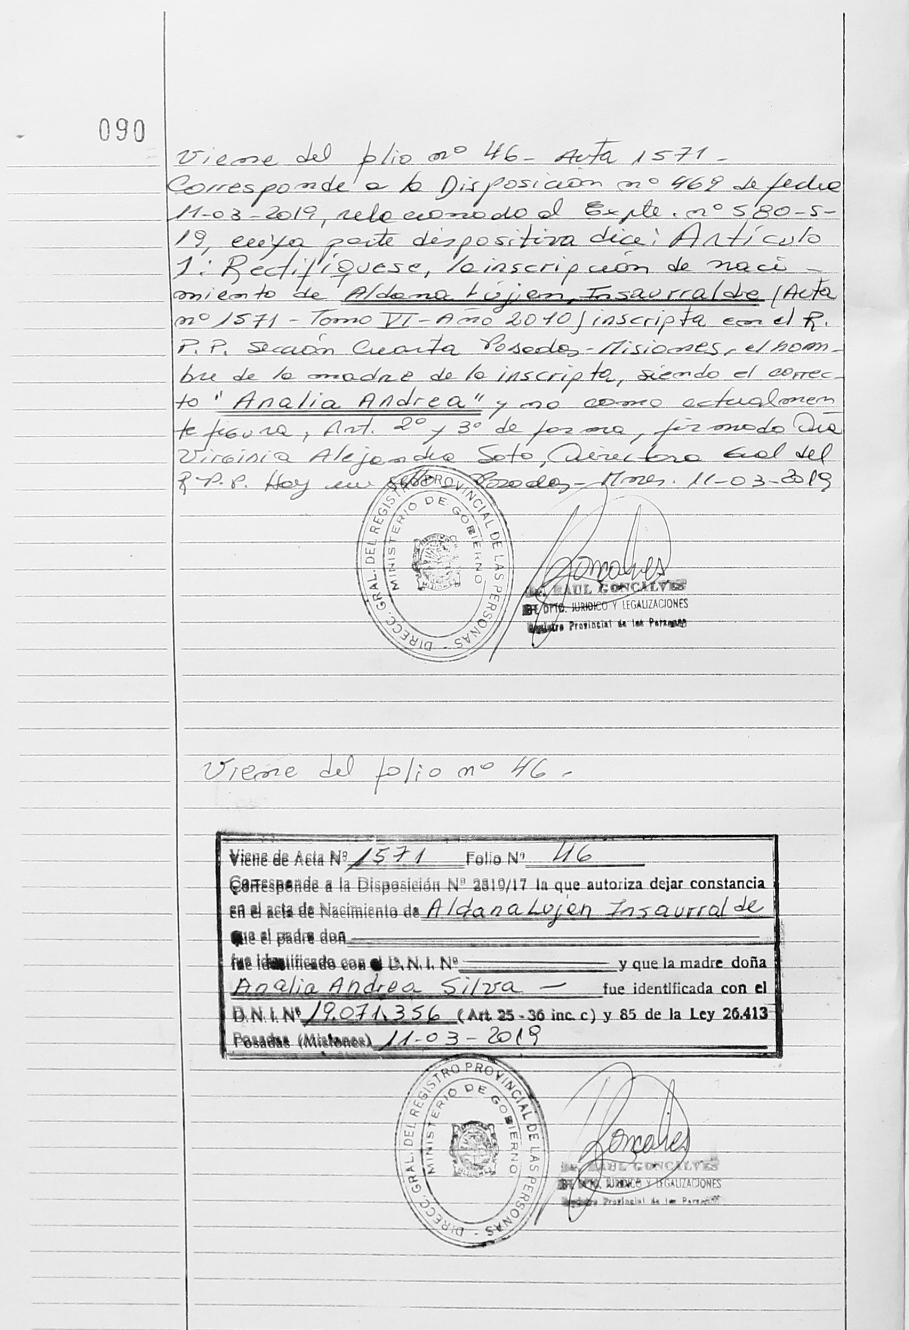 090
Viene del folio nº 46 - Acta 1571 -
Corresponde a la Disposición nº 469 de fecha
11-03-2019, relacionado al Expte. nº 580-S-
19, cuya parte dispositiva dice: Artículo
1: Rectifíquese, la inscripción de naci-
miento de Aldana Lujen, Insaurralde (Acta
nº 1571 - Tomo VI - Año 2010) inscripta en el R.
P. P. Sección Cuarta Posadas - Misiones, el nom-
bre de la madre de la inscripta, siendo el correc-
to "Analia Andrea" y no como actualmen
te figura, Art. 2º y 3º de forma, firmado Dra
Virginia Alejandra Soto, Directora Gral del
R.P.P. Hoy en Posadas - Mnes. 11-03-2019
DIRECC. GRAL. DEL REGISTRO PROVINCIAL DE LAS PERSONAS -
MINISTERIO DE GOBIERNO
Goncalves
RAUL GONCALVES
DPTO. JURIDICO Y LEGALIZACIONES
Registro Provincial de las Personas
Viene del folio nº 46 -
Viene de Acta Nº 1571 Folio Nº 46
Corresponde a la Disposición Nº 2319/17 la que autoriza dejar constancia
en el acta de Nacimiento de Aldana Lujen Insaurralde
que el padre don
fue identificado con el D.N.I. Nº y que la madre doña
Analia Andrea Silva - fue identificada con el
D.N.I. Nº 19.071.356 (Art. 25 - 36 inc. c) y 85 de la Ley 26.413
Posadas (Misiones) 11-03-2019
DIRECC. GRAL. DEL REGISTRO PROVINCIAL DE LAS PERSONAS -
MINISTERIO DE GOBIERNO
Goncalves
RAUL GONCALVES
DPTO. JURIDICO Y LEGALIZACIONES
Registro Provincial de las Personas